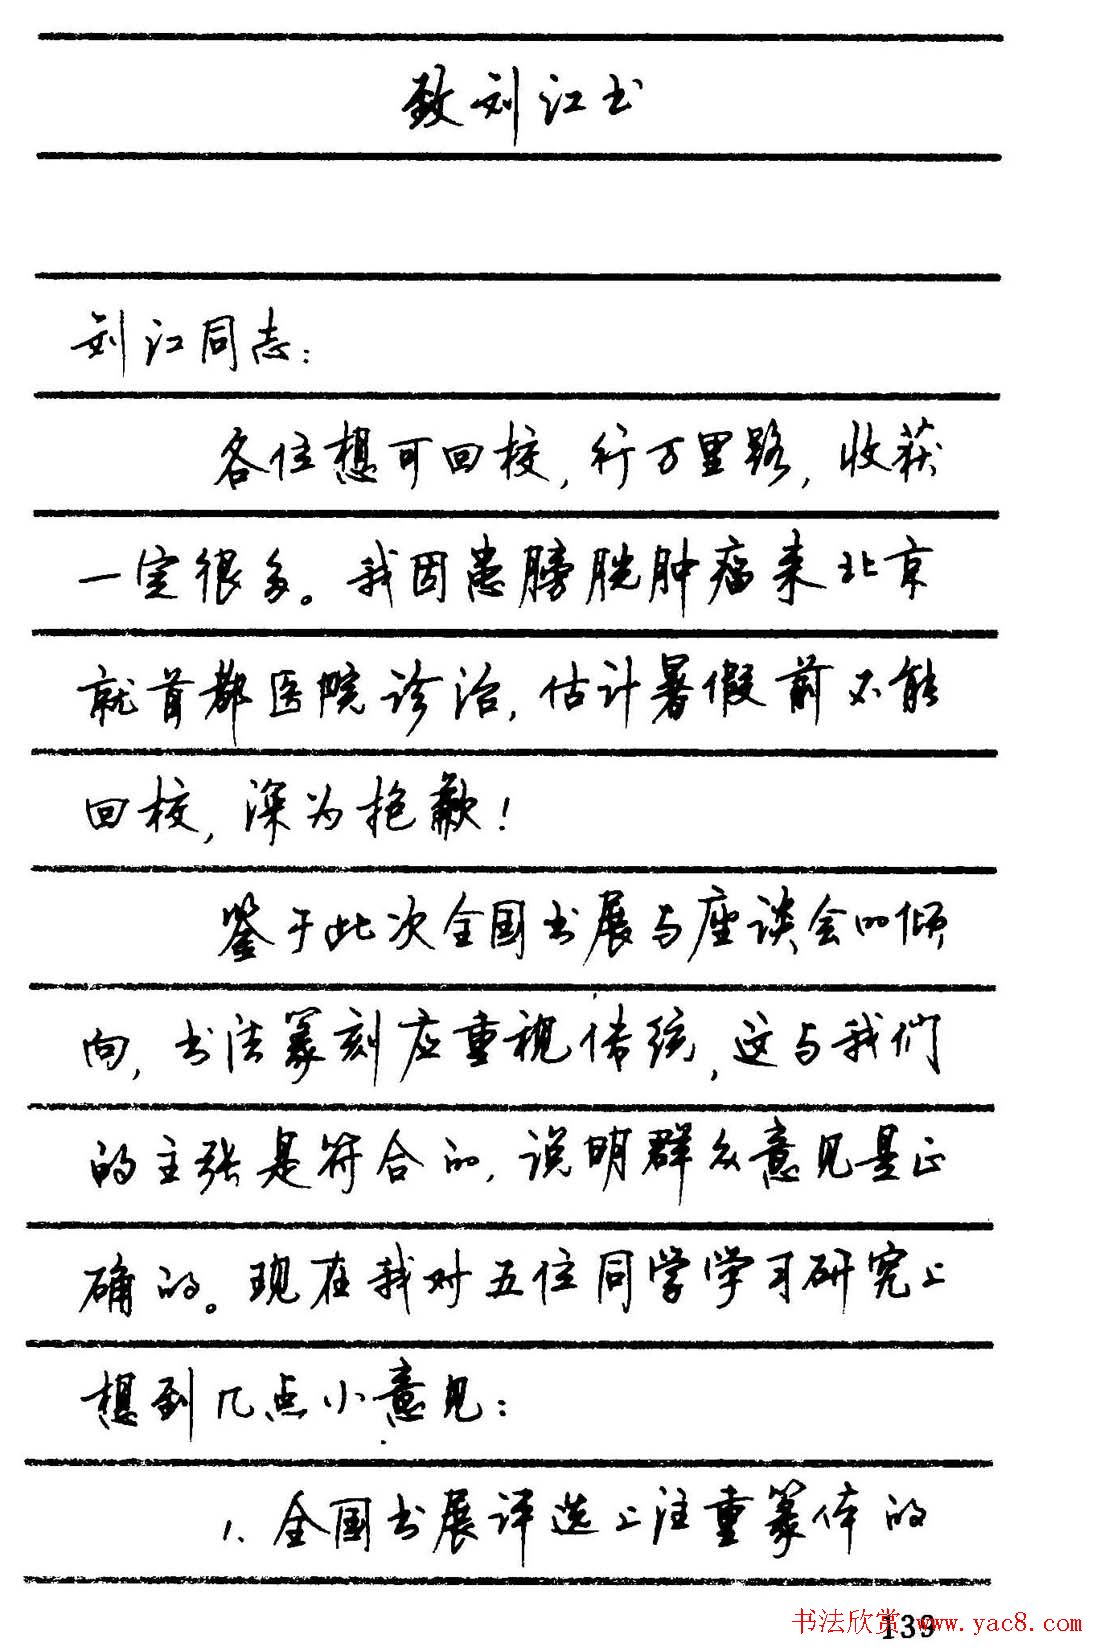 致刘江书
刘江同志：
各位想可回校，行万里路，收获
一定很多。我因患膀胱肿瘤来北京
就首都医院诊治，估计暑假前不能
回校，深为抱歉！
鉴于此次全国书展与座谈会的倾
向，书法篆刻应重视传统，这与我们
的主张是符合的，说明群众意见是正
确的。现在我对五位同学学习研究上
想到几点小意见：
1、全国书展评选上注重篆体的
书法欣赏 www.yac8.com
139